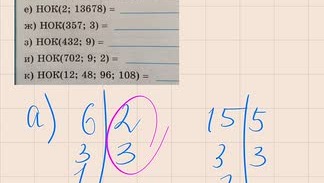 е) НОК(2; 13678) =
ж) НОК(357; 3) =
з) НОК(432; 9) =
и) НОК(702; 9; 2) =
к) НОК(12; 48; 96; 108) =
а) 6 | 2 15 | 5
3 | 3 3 | 3
1